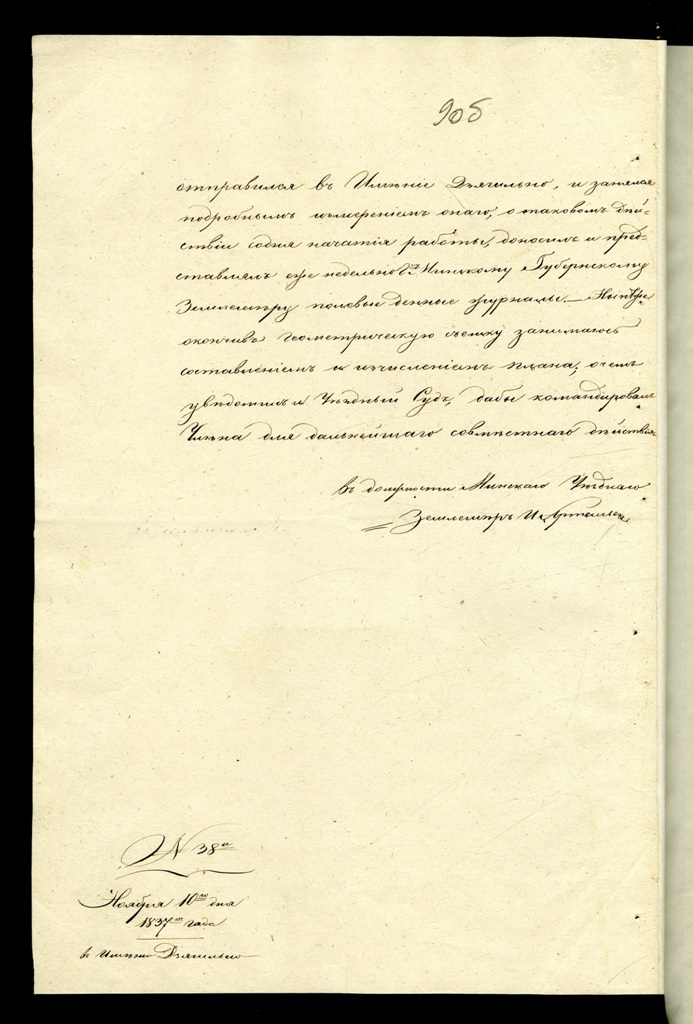 905
отправился въ Имѣніе Дзягильно, и занялся
подробнымъ измѣреніемъ онаго, о таковомъ дѣй-
ствіи со дня начатія работы, доносилъ и пред-
ставлялъ еженедѣльно Г. Минскому Губернскому
Землемѣру полевые денные журналы. — Нынѣ же
окончивъ геометрическую съемку занимаюсь
составленіемъ и изчисленіемъ плана, о чемъ
увѣдомилъ и Уѣздный Судъ, дабы командировалъ
Члена для дальнейшаго совмѣстнаго дѣйствія
Въ должности Минскаго Уѣзднаго
Землемѣръ
N 38й
Ноября 10го дня
1837го года
въ имѣніи Дзягильно